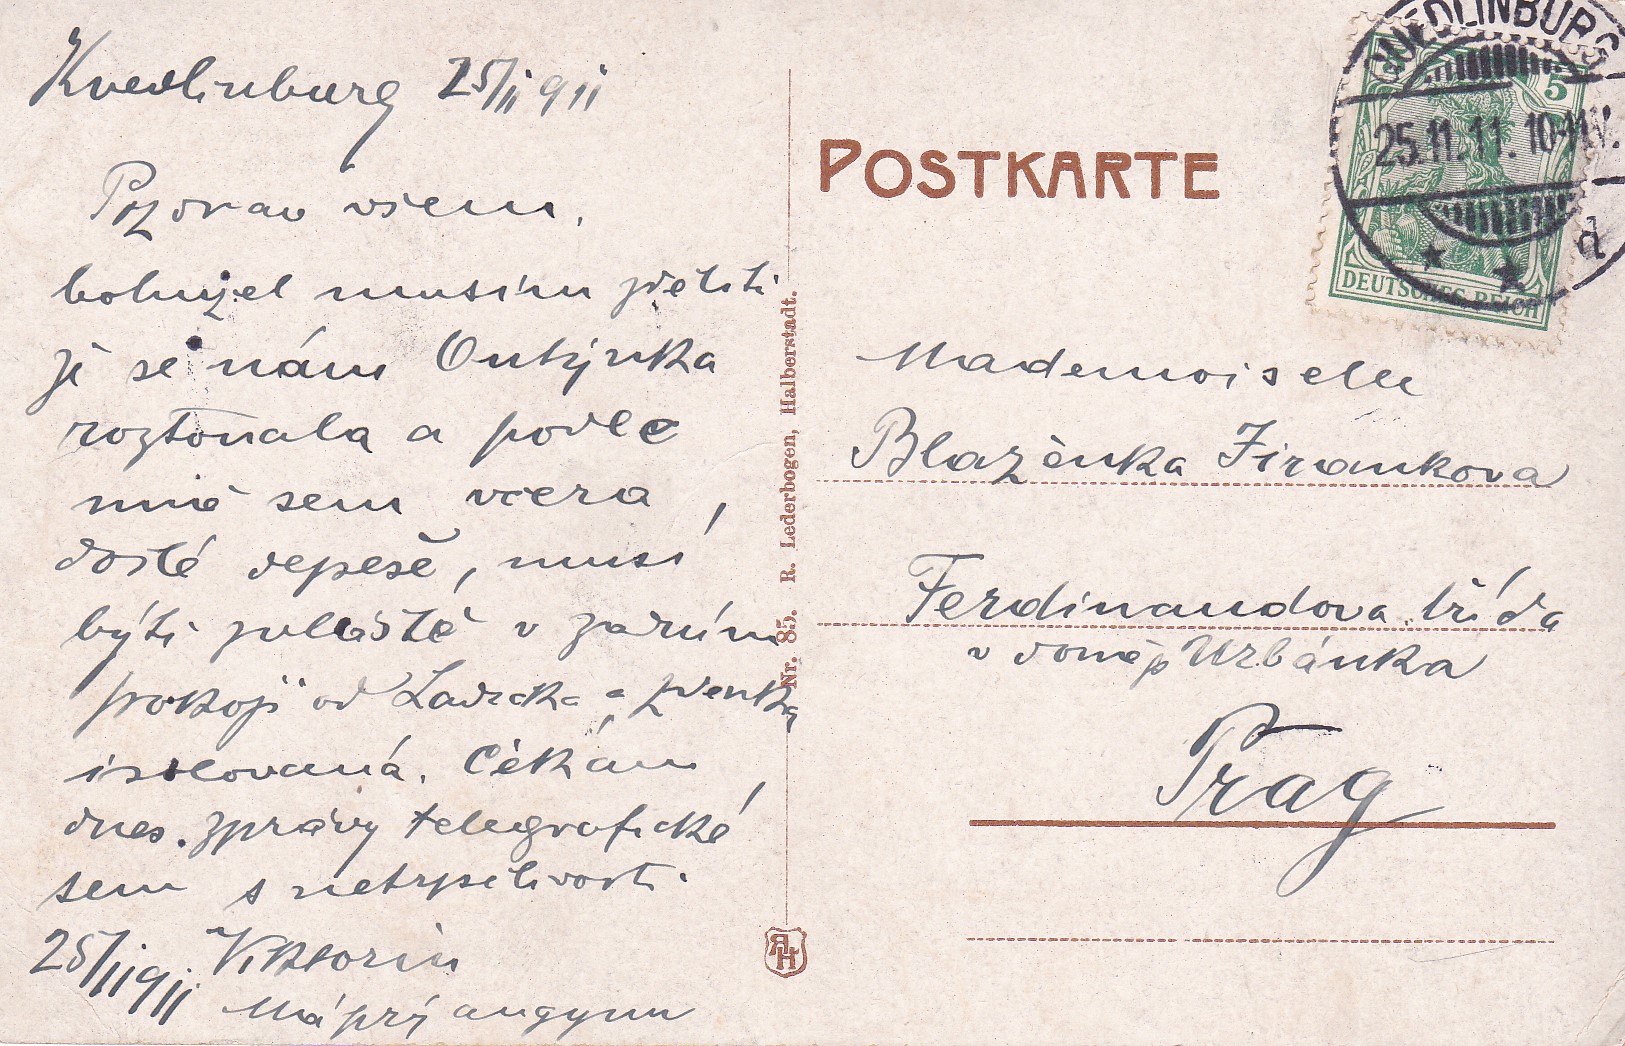 Kvedlinburg 25/11 911
Pozdrav všem,
bohužel musím sděliti
že se nám Ontýnka
roztonala a podle
mně sem včera,
došlé depeše, musí
býti zvláště v zadním
pokoji od Ladečka a Zdenka
isolovaná. Čekám
dnes zprávy telegrafické
sem s netrpělivostí.
25/11 911 Viktorin
Má prý angynu
Nr. 85. R. Lederbogen, Halberstadt.
RLH
POSTKARTE
QUEDLINBURG
25.11.11. 10-11V.
d
5
DEUTSCHES REICH
Mademoiselle
Blaženka Jirankova
Ferdinandova třída
v domě p Urbánka
Prag